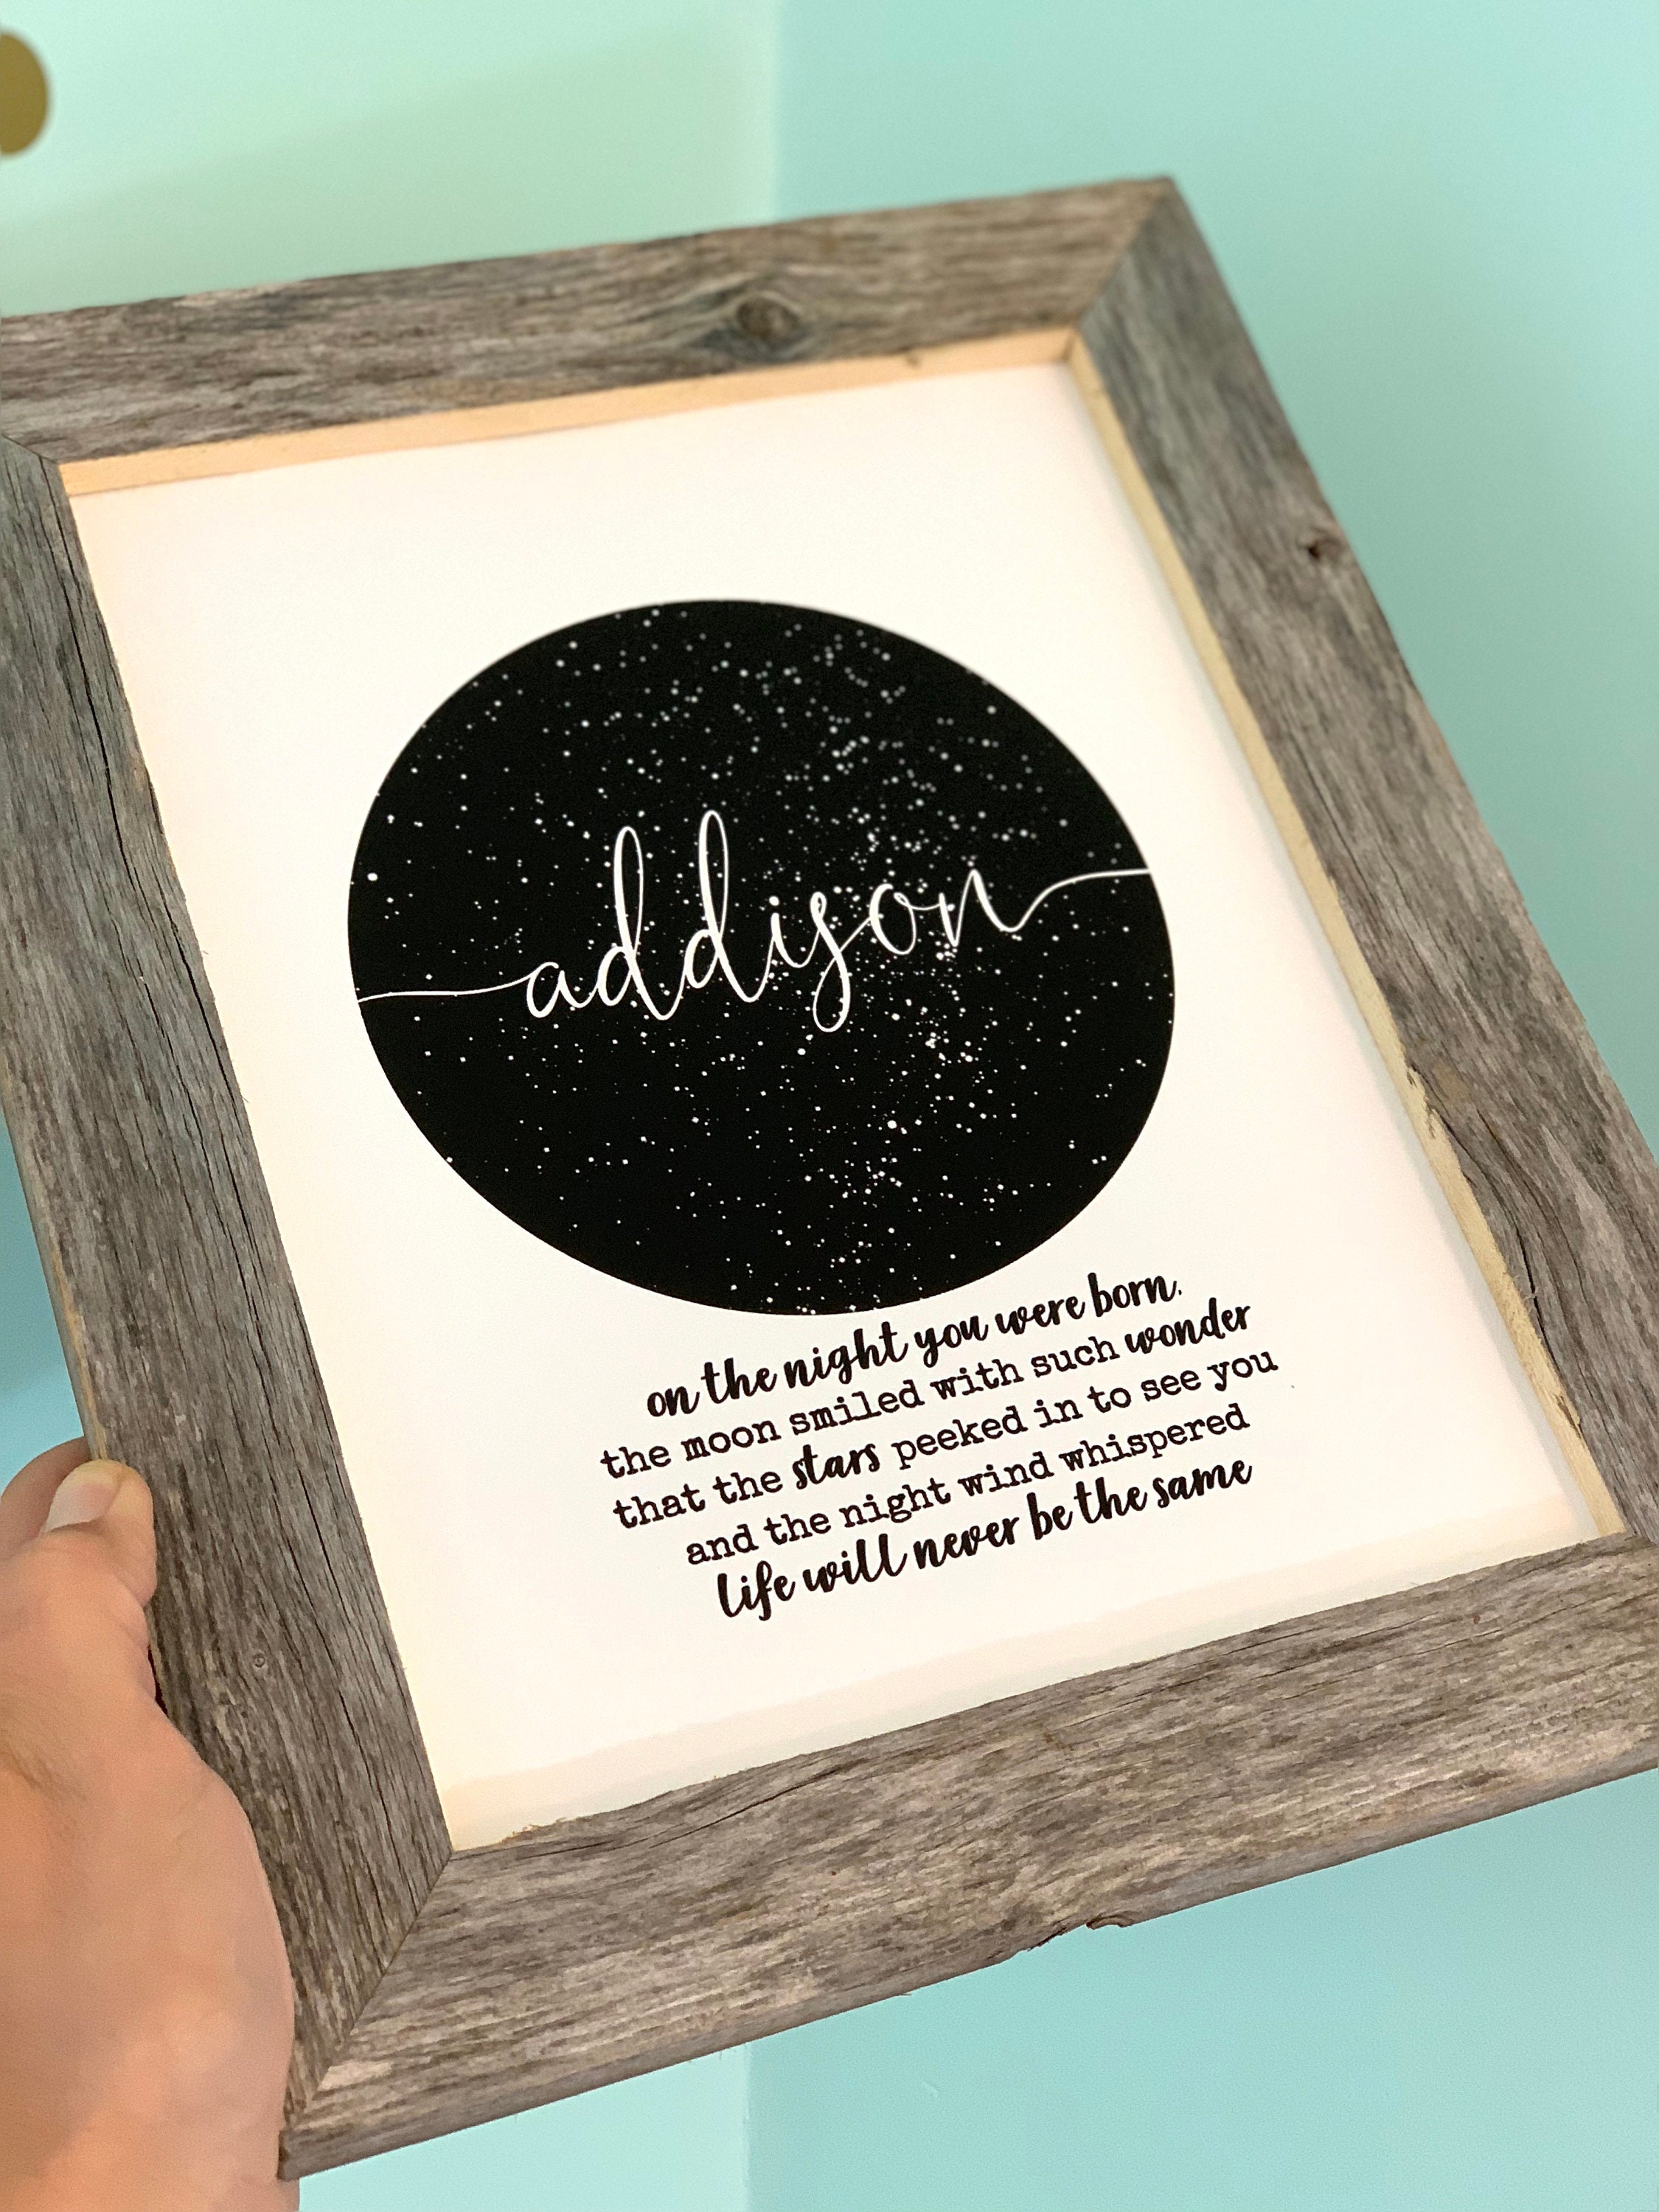 addison
on the night you were born,
the moon smiled with such wonder
that the stars peeked in to see you
and the night wind whispered
life will never be the same